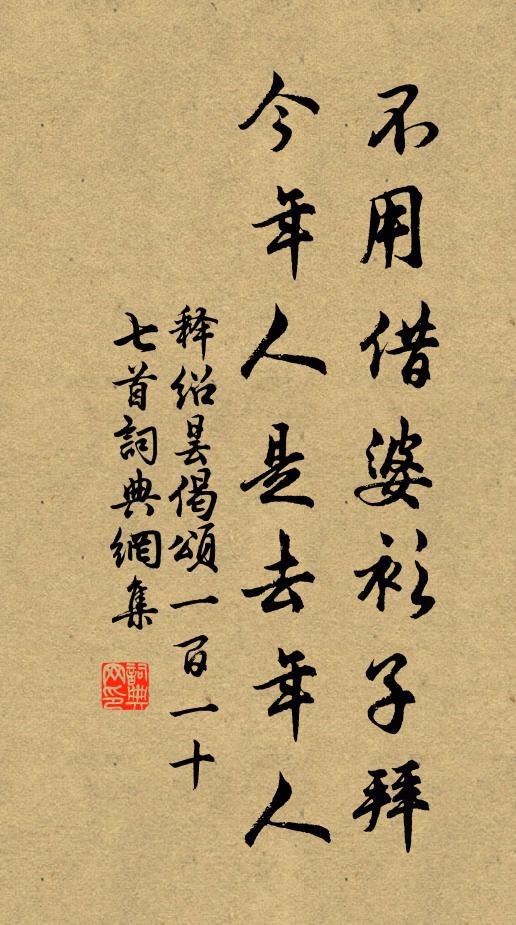 不用借婆衫子拜
今年人是去年人
释绍昙偈頌一百一十
七首詞典網集
詞典網印